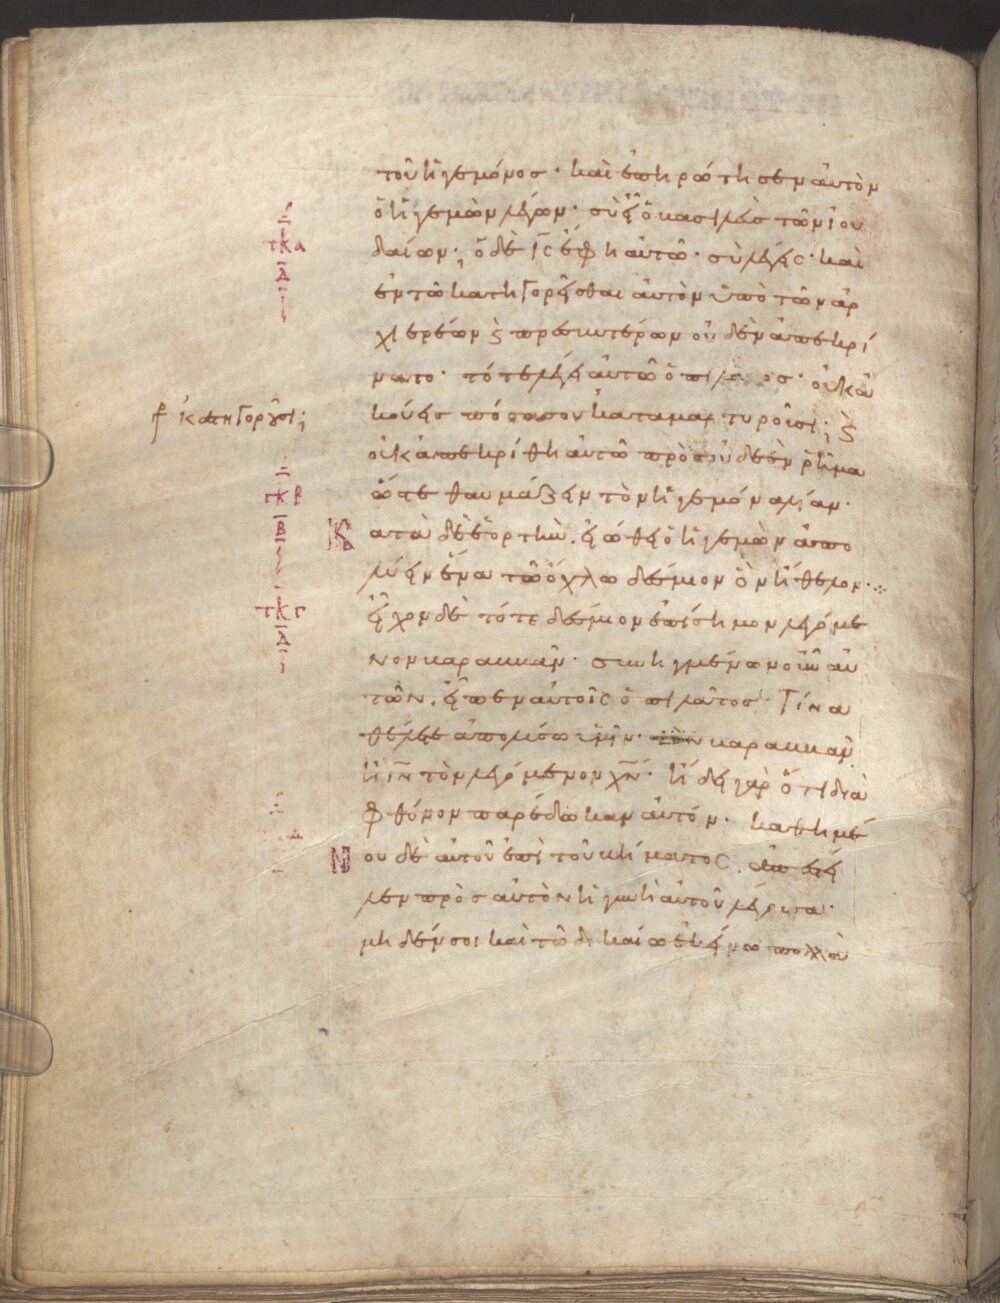 τοῦ ἡγεμόνος· καὶ ἐπηρώτησεν αὐτὸν
ὁ ἡγεμὼν λέγων· σὺ εἶ ὁ βασιλεὺς τῶν ἰου
τκα
δαίων; ὁ δὲ ι̅ς̅ ἔφη αὐτῶ· σὺ λέγεις· καὶ
ἐν τῶ κατηγορεῖσθαι αὐτὸν ὑπὸ τῶν ἀρ
χιερέων ϗ πρεσβυτέρων οὐδὲν ἀπεκρί
νατο· τότε λέγει αὐτῶ ὁ πιλάτος· οὐκ ἀ
κατηγοροῦσι;
κούεις πόσα σου καταμαρτυροῦσι; ϗ
οὐκ ἀπεκρίθη αὐτῶ πρὸς οὐδὲ ἓν ῥῆμα
τκβ
ὥστε θαυμάζειν τὸν ἡγεμόνα λίαν·
Κατὰ δὲ ἑορτὴν. εἰώθει ὁ ἡγεμὼν ἀπο
λύειν ἕνα τῶ ὄχλω δέσμιον ὃν ἤθελον·
τκγ
εἶχον δὲ τότε δέσμιον ἐπίσημον λεγόμε
νον βαραββᾶν· συνηγμένων οὖν αὐ
τῶν. εἶπεν αὐτοῖς ὁ πιλᾶτος· Τίνα
θέλετε ἀπολύσω ὑμῖν· τὸν βαραββᾶν
ἢ ι̅ν̅ τὸν λεγόμενον χ̅ν̅· ἤδει γὰρ ὅτι διὰ
φθόνον παρέδωκαν αὐτόν· καθημέ
Νου δὲ αὐτοῦ ἐπὶ τοῦ βήματος. ἀπέστει
λεν πρὸς αὐτὸν ἡ γυνὴ αὐτοῦ λέγουσα·
μηδέν σοι καὶ τῶ δικαίω ἐκείνω πολλὰ